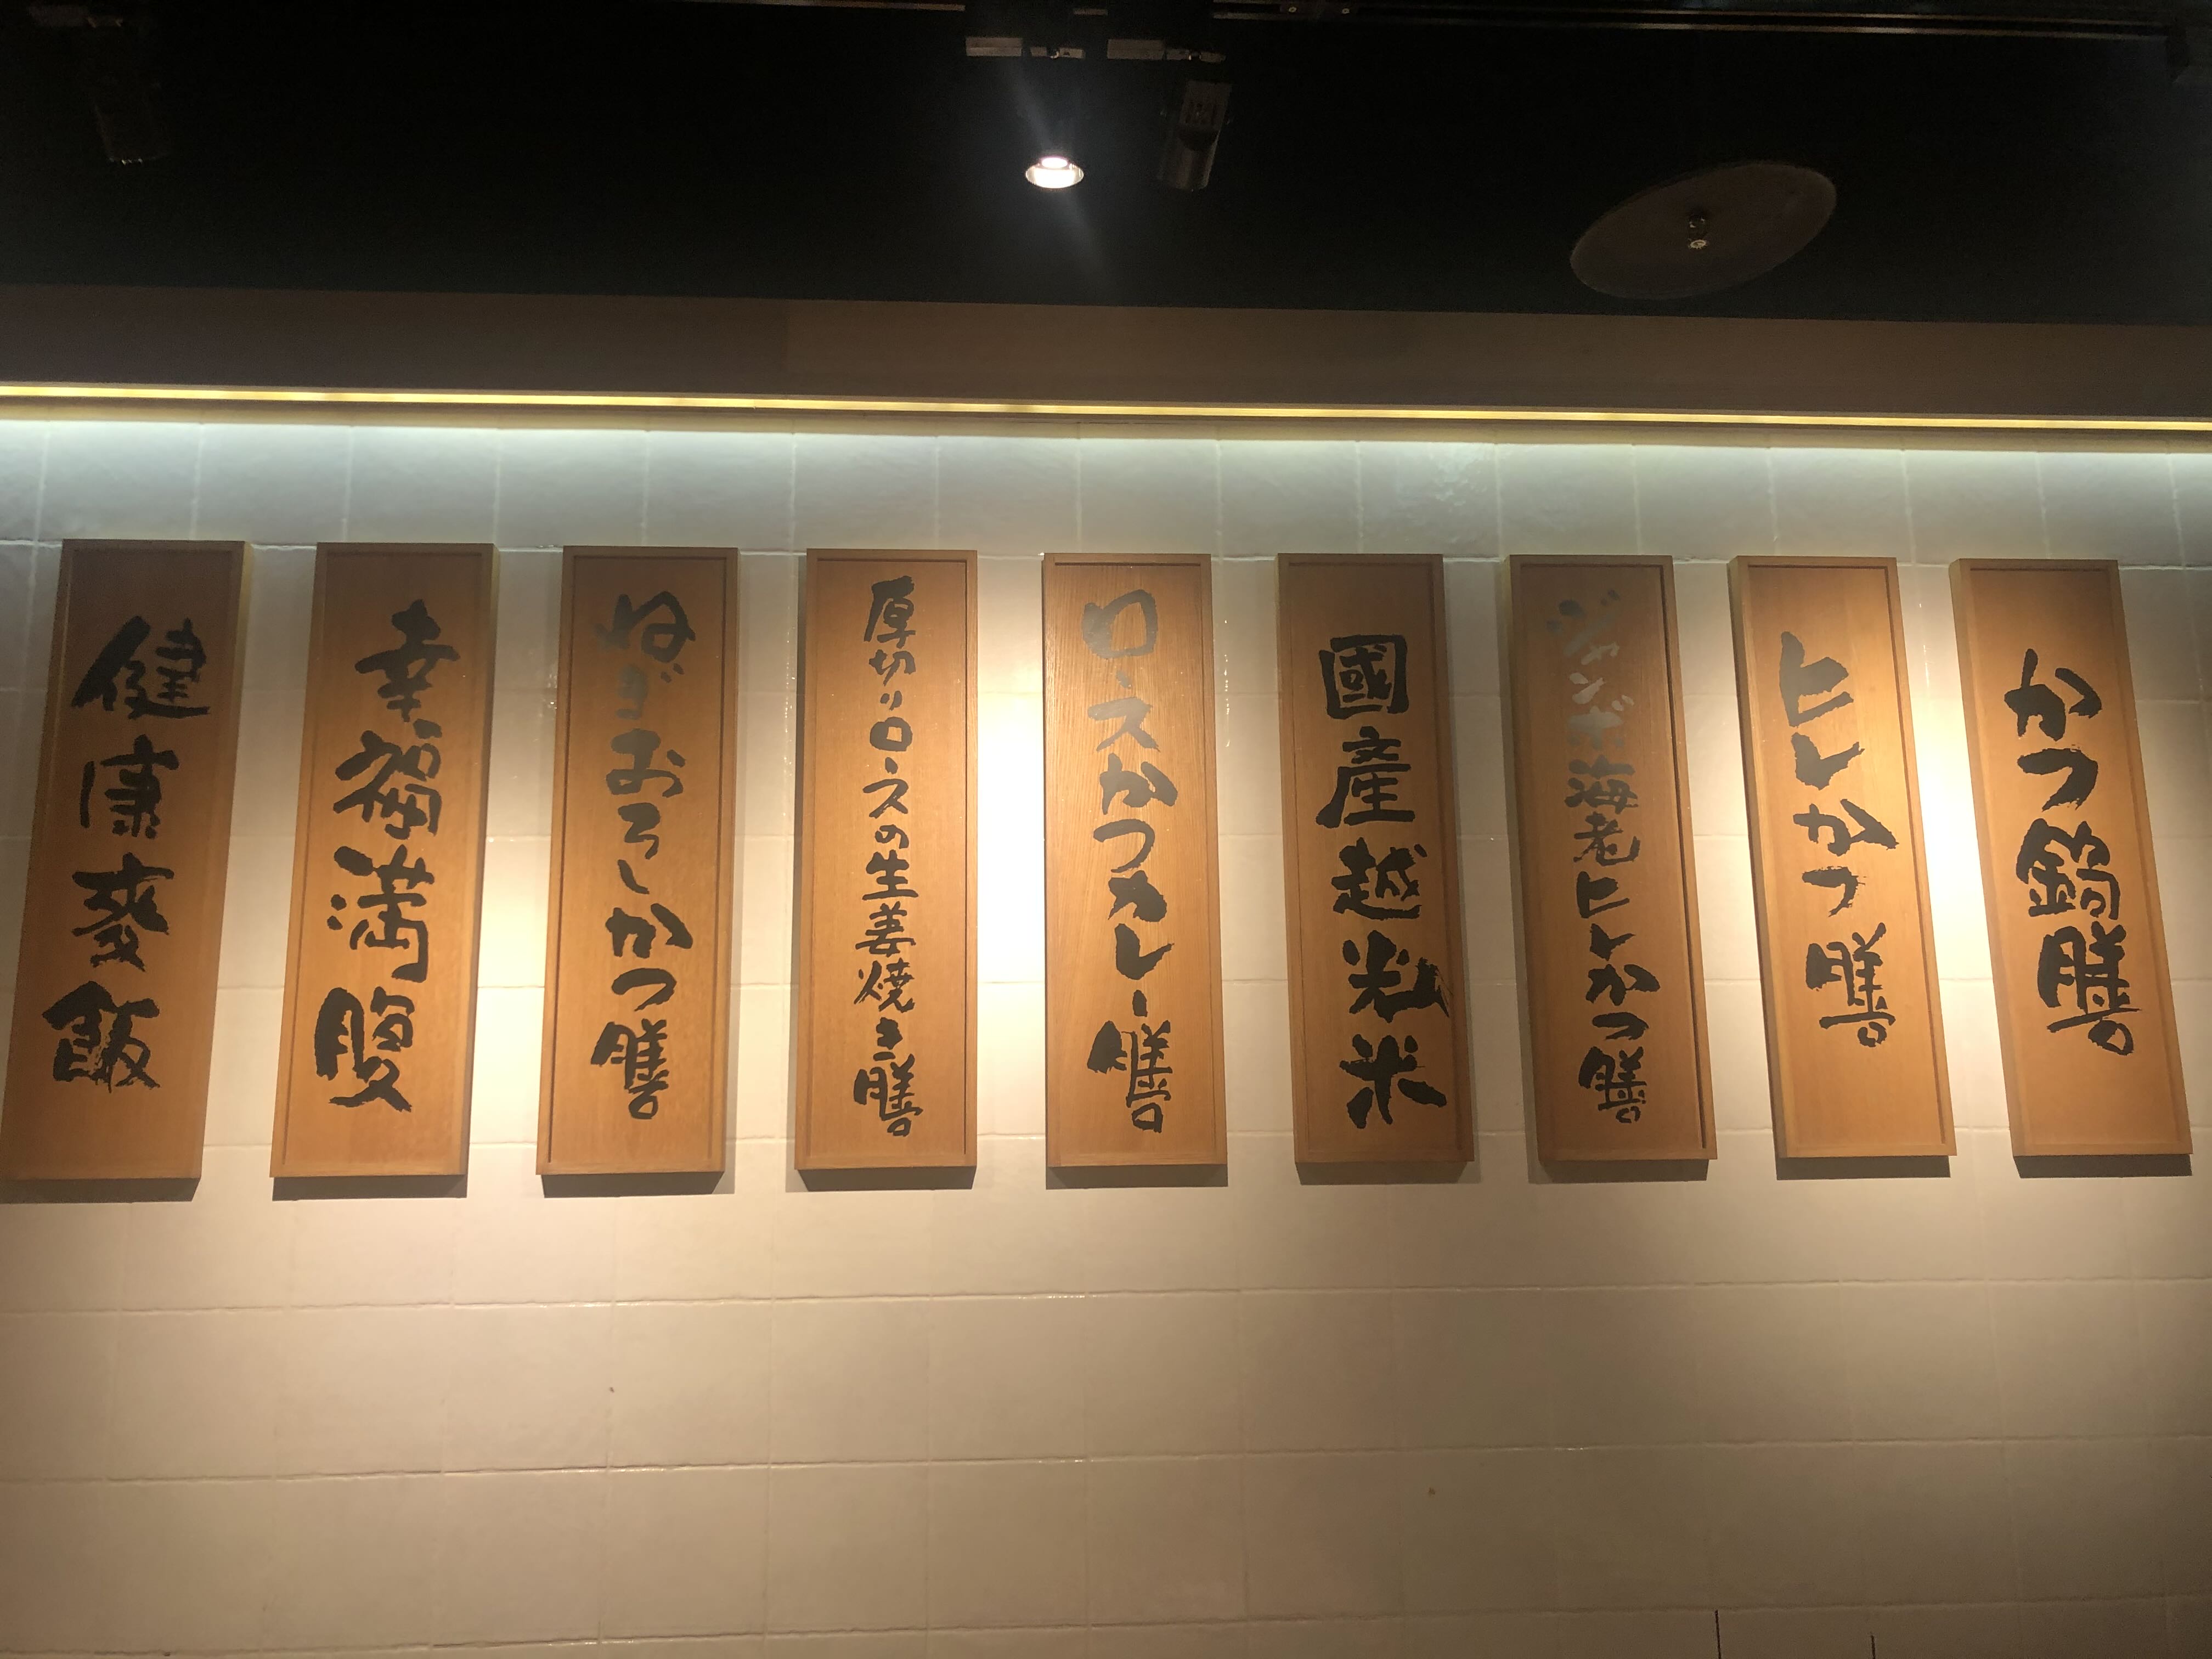 かつ鍋膳
ヒレかつ膳
ジャンボ海老ヒレかつ膳
國産越光米
ロースかつカレー膳
厚切りロースの生姜焼き膳
ねぎおろしかつ膳
幸福満腹
健康麦飯